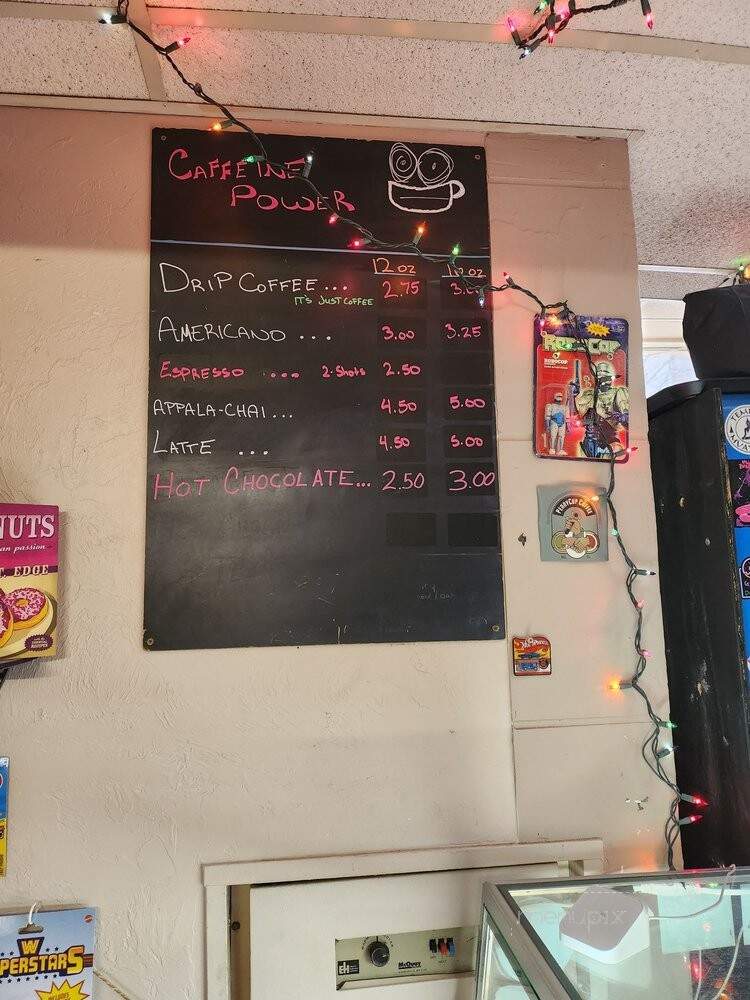 CAFFEINE
POWER
12 oz
DRIP COFFEE... 2.75
IT'S JUST COFFEE
AMERICANO ... 3.00 3.25
ESPRESSO .... 2-Shots 2.50
APPALA-CHAI... 4.50 5.00
LATTE ... 4.50 5.00
HOT CHOCOLATE... 2.50 3.00
ROBOCOP
PERRYCUP COFFEE
NUTS
an passion
T. EDGE
W
PERSTARS
McQuay
menupix